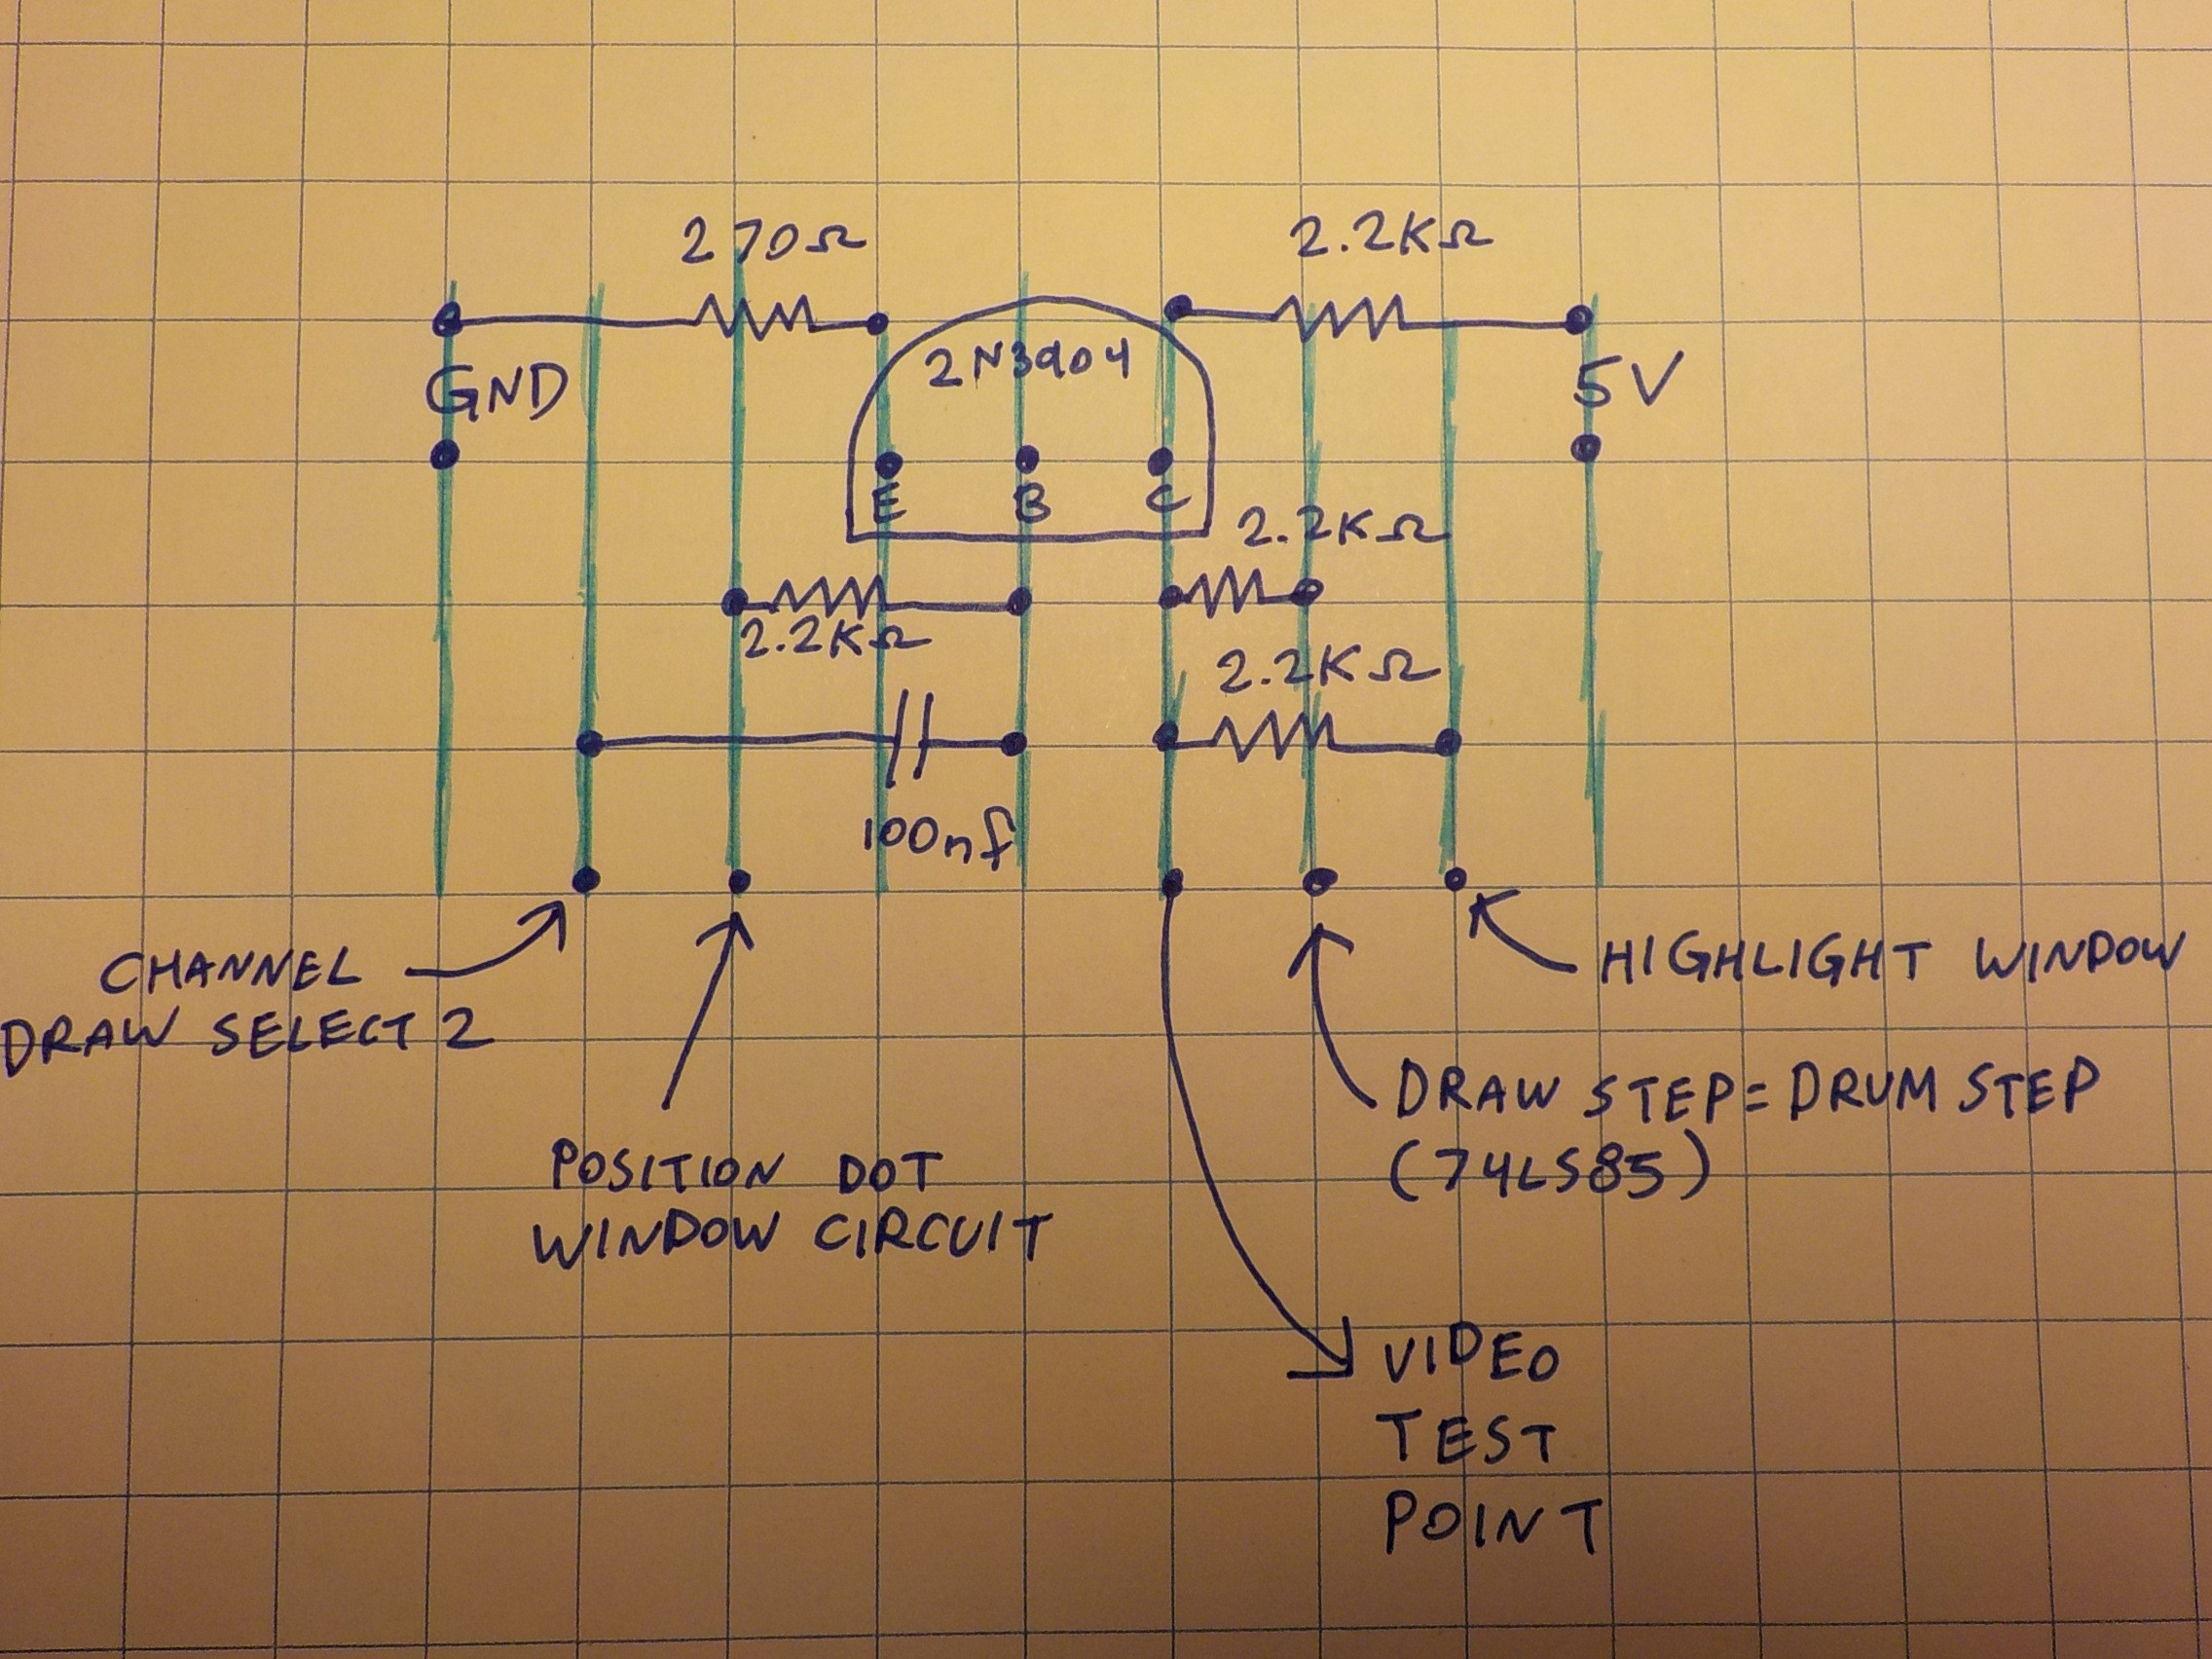 270Ω
2.2KΩ
2N3904
GND
5V
E B C
2.2KΩ
2.2KΩ
2.2KΩ
100nf
CHANNEL
DRAW SELECT 2
HIGHLIGHT WINDOW
DRAW STEP=DRUM STEP
(74LS85)
POSITION DOT
WINDOW CIRCUIT
VIDEO
TEST
POINT